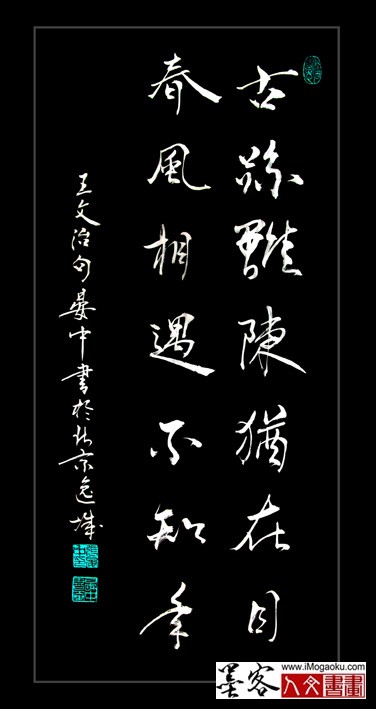 古跡雖陳猶在目
春風相遇不知年
王文治句晏中書於北京逸城
墨客
www.iMogaoku.com
人文書畫